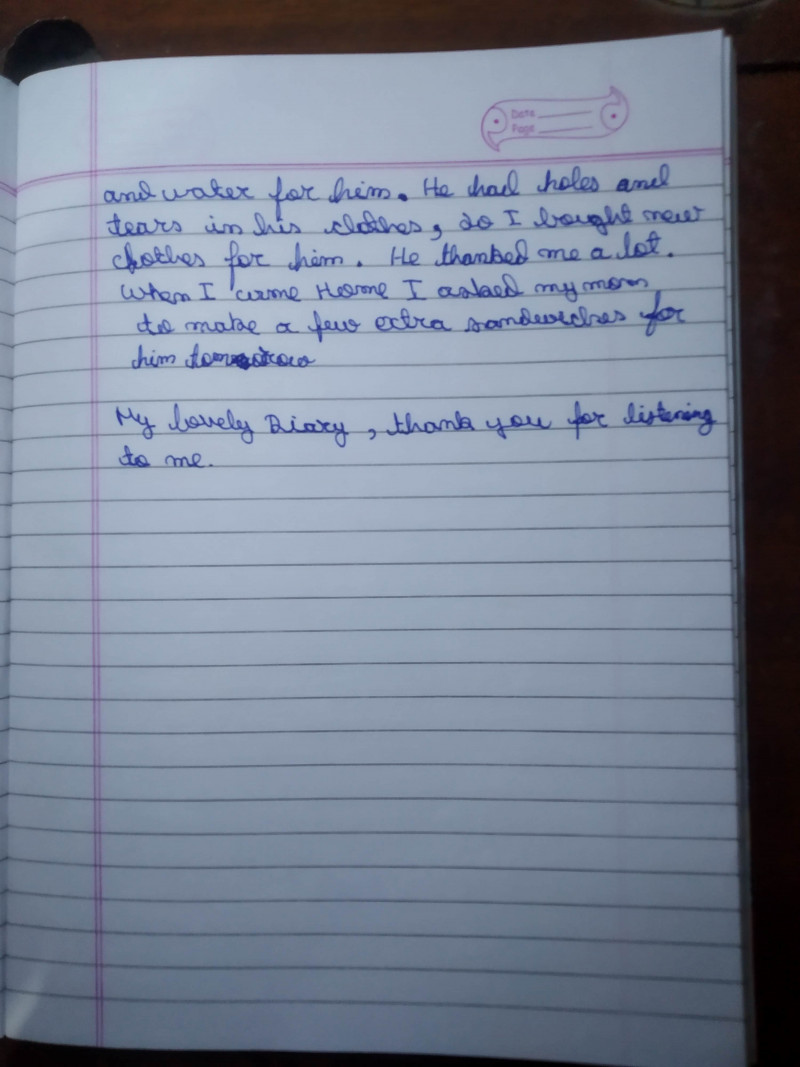 Date
Page
and water for him. He had holes and
tears in his clothes, so I bought new
clothes for him. He thanked me a lot.
When I came Home I asked my mom
to make a few extra sandwiches for
him tomorrow
My lovely Diary, thank you for listening
to me.